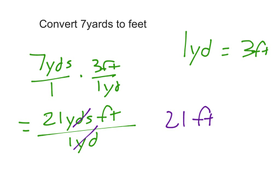 Convert 7yards to feet
1yd = 3ft
7yds/1 · 3ft/1yd
= 21yds ft/1yd 21 ft